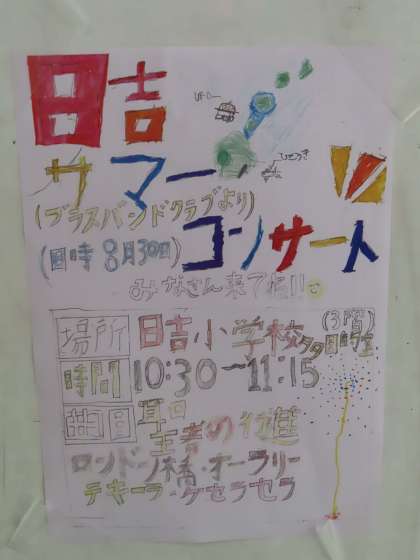 日吉
サマー
(ブラスバンドクラブより)
(日時 8月30日)
コンサート
みなさん来てね!!
場所 日吉小学校
(3階)
時間 10:30〜11:15
曲目
王者の行進
ロンドン橋・オーラリー
テキーラ・ケセラセラ